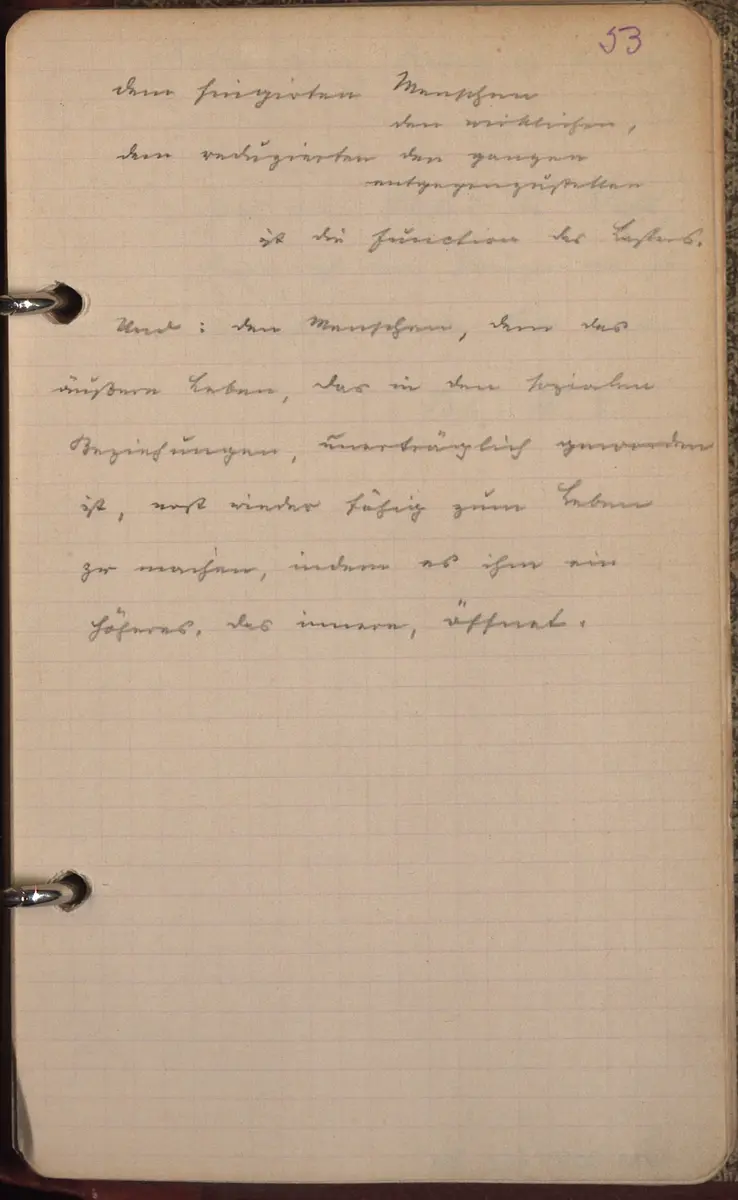 53
dem fingirten Menschen
den wirklichen,
dem reduzierten den ganzen
entgegenzustellen
ist die Function des Lesens.
Und: den Menschen, dem das
äußere Leben, das in den sozialen
Beziehungen, unerträglich geworden
ist, erst wieder fähig zum Leben
zu machen, indem es ihm ein
höheres, das innere, öffnet.